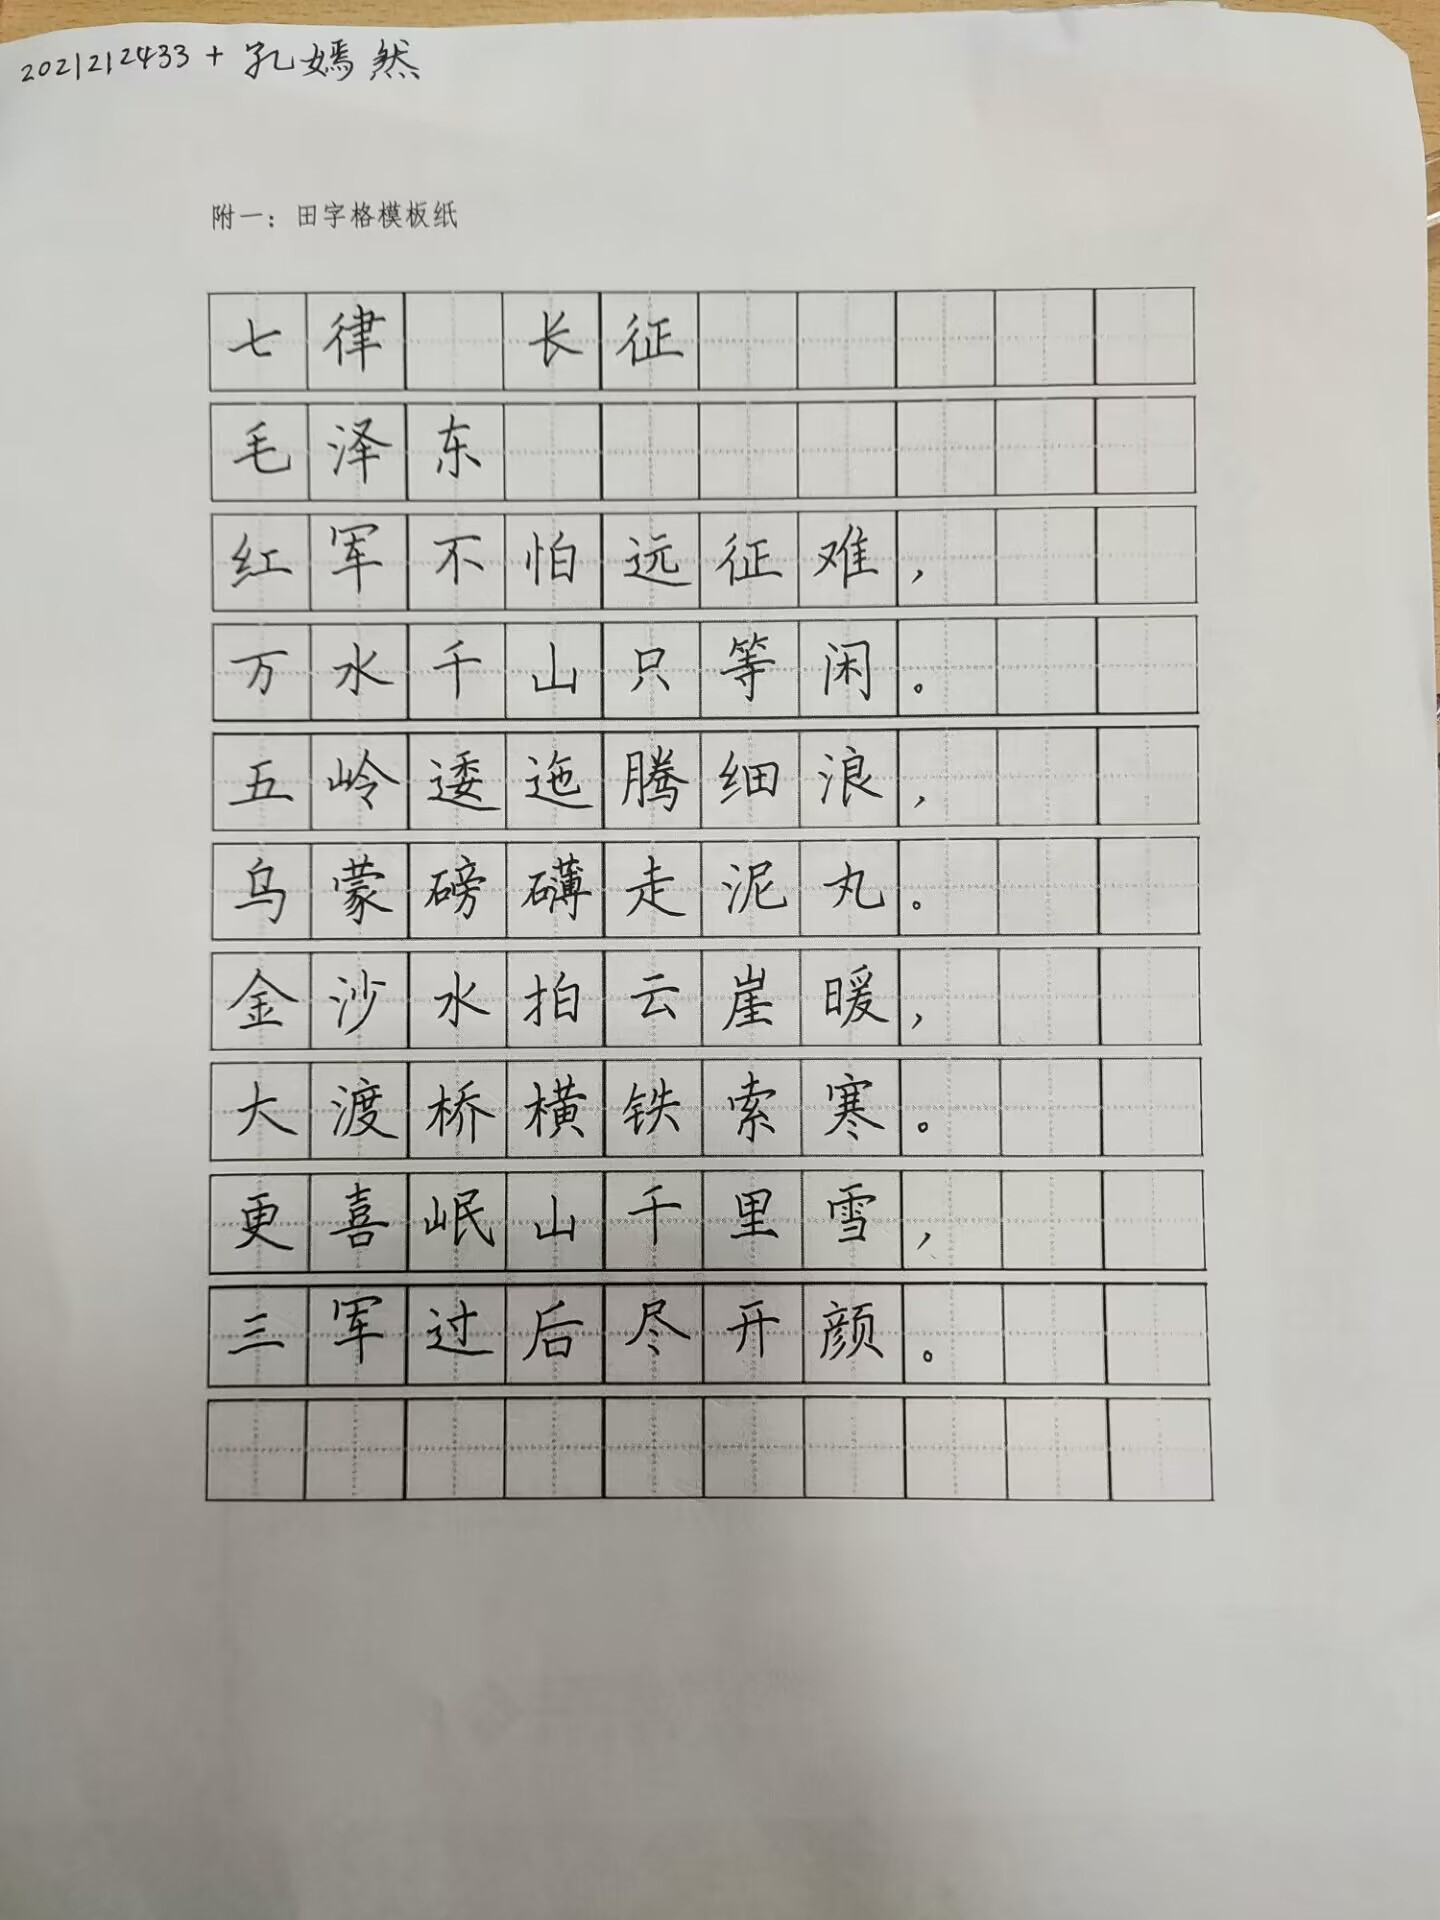 2021212433 + 孔嫣然
附一：田字格模板纸
七律 长征
毛泽东
红军不怕远征难，
万水千山只等闲。
五岭逶迤腾细浪，
乌蒙磅礴走泥丸。
金沙水拍云崖暖，
大渡桥横铁索寒。
更喜岷山千里雪，
三军过后尽开颜。